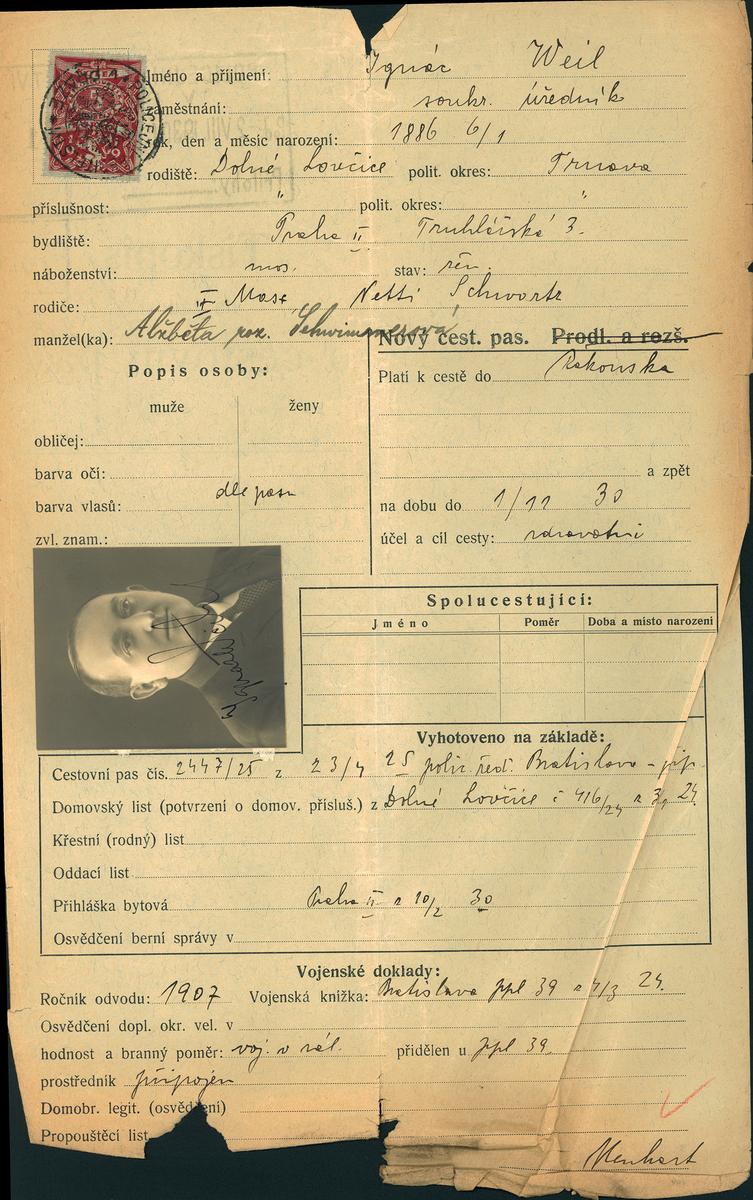 Jméno a příjmení: Ignác Weil
zaměstnání: soukr. úředník
rok, den a měsíc narození: 1886 6/1
rodiště: Dolné Lovčice polit. okres: Trnava
příslušnost: " polit. okres: "
bydliště: Praha II Truhlářská 3.
náboženství: mos. stav: žen.
rodiče: Netti Schwartz
manžel(ka): Alžběta roz. Schwimmerová
Nový cest. pas. Prodl. a rozš.
Popis osoby:
Platí k cestě do Rakouska
muže ženy
obličej:
barva očí:
a zpět
barva vlasů: dle pasu
na dobu do 1/11 30
zvl. znam.:
účel a cíl cesty: zdravotní
Spolucestující:
Jméno Poměr Doba a místo narození
Vyhotoveno na základě:
Cestovní pas čís. 2447/25 z 23/4 25 polic. řed. Bratislava - přip.
Domovský list (potvrzení o domov. přísluš.) z Dolné Lovčice č 416/24 24.
Křestní (rodný) list
Oddací list
Přihláška bytová Praha II z 10/2 30
Osvědčení berní správy v
Vojenské doklady:
Ročník odvodu: 1907 Vojenská knížka: Bratislava ppl 39 z 4/3 24.
Osvědčení dopl. okr. vel. v
hodnost a branný poměr: voj. v zál. přidělen u ppl 39.
prostředník připojen
Domobr. legit. (osvědčení)
Propouštěcí list